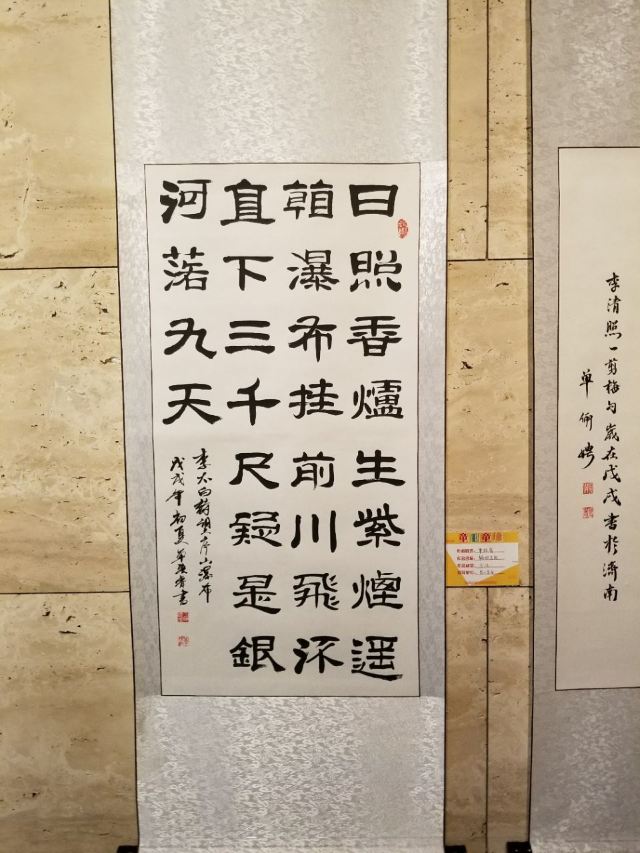 日照香爐生紫煙遥
看瀑布挂前川飛流
直下三千尺疑是銀
河落九天
李太白詩望庐山瀑布
戊戌年初夏書
李清照一剪梅句歲在戊戌書於濟南